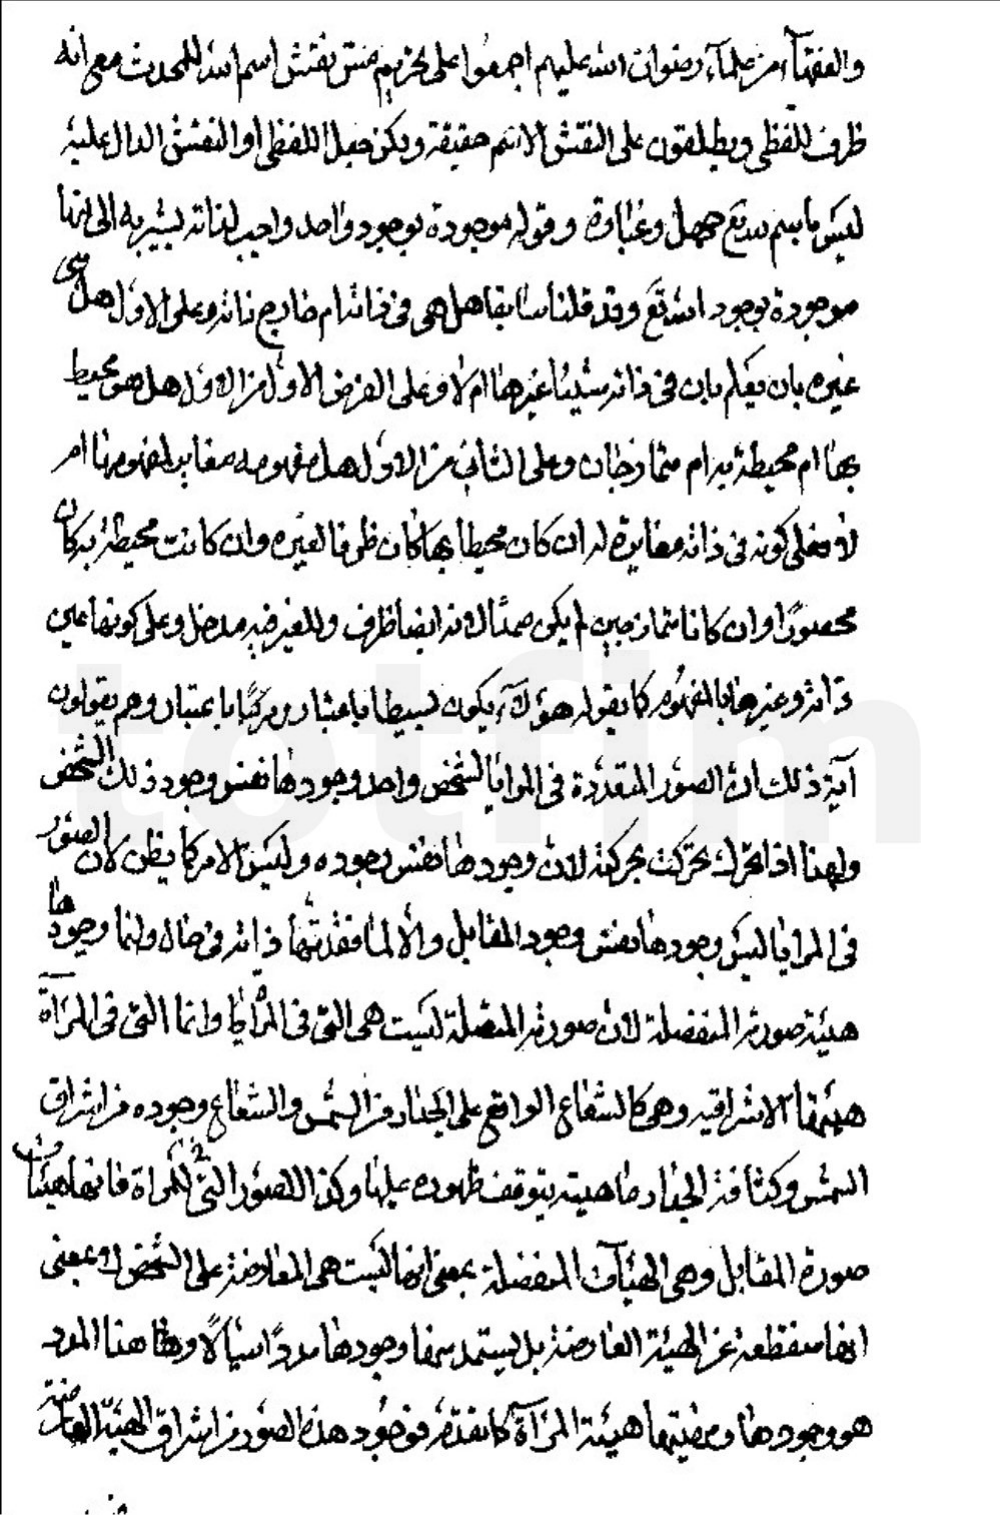 والفقهآء من علمآء رضوان الله عليهم اجمعوا على تحريم مسّ نقش اسم الله للمحدث مع انه
ظرف للفظي ويطلقون على النقش الاسم حقيقة ويكن جعل اللفظ او النقش الدال عليه
ليس باسم لله تع جهل وغباوة وقوله موجودة بوجود واحد واجب لذاته يشير به الى انها
موجودة بوجود الله تعَ وقد قلنا سابقا هل هى فى ذاته ام خارج ذاته وعلى الاوّل هل هى
غيره بان يعلم بان فى ذاته شيئا غيرها ام لا وعلى الفرض الاوّل من الاوّل هل هو محيط
بها ام محيطة به ام متمازجان وعلى الثانى من الاوّل هل مفهومه مغاير لمفهومها ام
لا فعلى كونه فى ذاته مغايرة له ان كان محيطا بها كان ظرفا لغيره وان كانت محيطة به كان
محصورًا وان كانا متمازجين لم يكن صمدًا لانه ايضا ظرف وللغير فيه مدخل وعلى كونها عين
ذاته وغيرها بالمفهوم كما يقوله هؤلآء يكون بسيطا باعتبار ومركبًا باعتبار وهم يقولون
آية ذلك انّ الصوَر المتعدّدة فى المرايا لشخص واحد وجودها نفس وجود ذلك الشخص
ولهذا اذا تحرّك تحرّكت بحركته لانّ وجودها نفس وجوده وليس الامر كما يظن لان الصوَر
فى المرايا ليس وجودها نفس وجود المقابل والّا لما فقدتها ذاته فى حال وانما وجودها
هيئة صورته المنفصلة لانّ صورته المتصلة ليست هى التى فى المرايا وانما التى فى المرآة
هيئتها الاشراقيه وهى كالشعاع الواقع على الجدار من الشمس والشعاع وجوده من اشراق
الشمس وكثافة الجدار ماهيته يتوقف ظهوره عليها وكذا الصوَر التى فى المراة فانها هيئات
صورة المقابل وهى الهيئآت المنفصلة بمعنى انها ليست هى العارضة على الشخص لا بمعنى
انها منقطعة عن الهيئة العارضة بل يستمد منها وجودها مددًا سيّالًا وهذا المدد
هو وجودها وماهيتها هيئة المرآة كما تقدّم فوجود هذه الصوَر من اشراق الهيئة العارضة